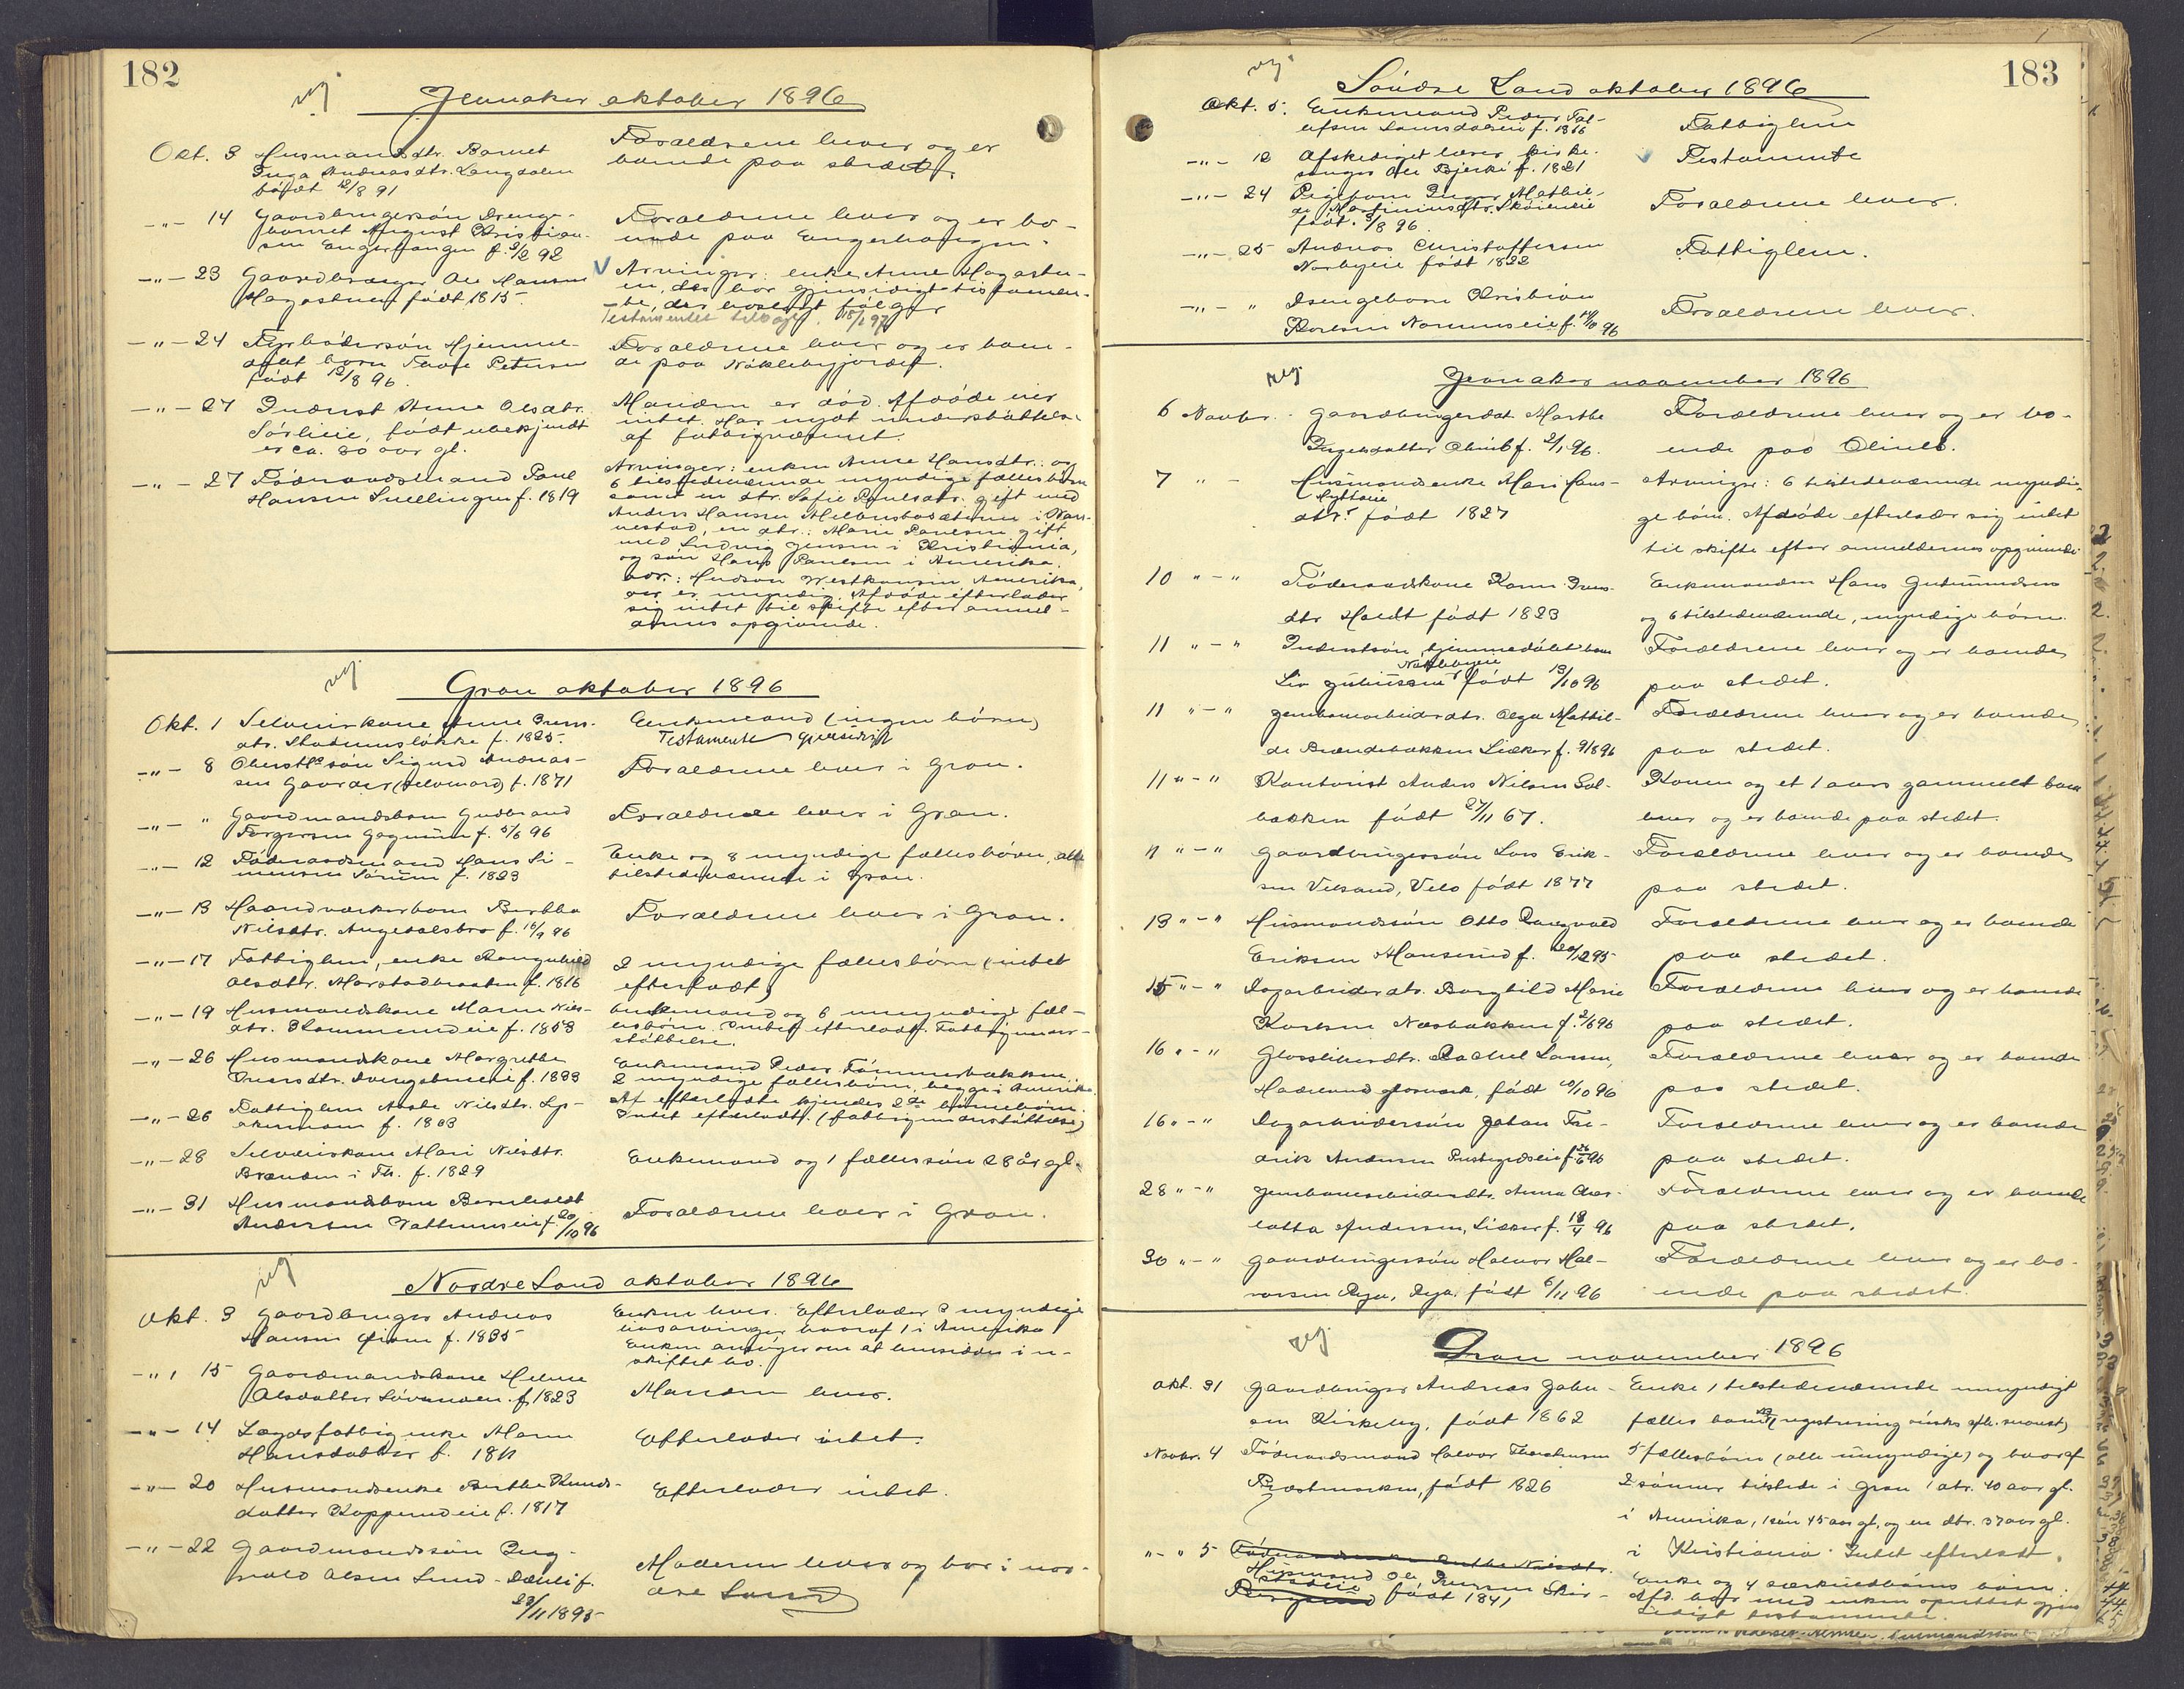 182
reg
Jevnaker oktober 1896
Okt. 3 Husmandsdtr. Barnet
Inga Andreasdtr. Langdalen
født 12/8 91
Forældrene lever og er
boende paa stedet.
-"- 14 Gaardbrugersøn Drenge-
barnet August Kristian-
sen Engerhaugen f. 2/2 92
Forældrene lever og er bo-
ende paa Engerhaugen.
-"- 23 Gaardbruger Ole Hansen
Hagastuen født 1815
Arvinger: enke Anne Hagastu-
en, der har gjensidigt testamen-
te, der hoslagt følger
Testamentet tilbage 18/1 97
-"- 24 Fyrbødersøn Hjemme-
døbt barn Petersen
født 12/8 96.
Forældrene lever og er boen-
de paa Nøklebyjordet.
-"- 27 Inderst Anne Olsdtr.
Sørlieie, født ubekjendt
er ca. 80 aar gl.
Manden er død. Afdøde eier
intet. Har nydt understøttelse
af fattigvæsenet.
-"- 27 Føderaadsmand Paul
Hansen Snellingen f. 1819
Arvinger: enken Anne Hansdtr. og
6 tilstedeværende myndige fællesbørn
samt en dtr. Sofie Paulsdtr. gift med
Anders Hansen i
en dtr.: Marie Paulsen gift
med Ludvig Jensen i Kristiania,
og søn Hans Paulsen i Amerika.
adr.: Hudson Westkonsin Amerika,
alle er myndig. Afdøde efterlader
sig intet til skifte efter anmel-
dernes opgivende.
reg
Gran oktober 1896
Okt. 1 Selveierkone Anne Ivers-
dtr. Stadumsløkke f. 1825.
Enkemand (ingen børn)
Testamente
-"- 8 Oberstl. søn Sigurd Andreas-
sen Gaarder (selvmord) f. 1871
Forældrene lever i Gran.
-"- " Gaardmandsbarn Gudbrand
Torgersen f. 5/6 96
Forældrene lever i Gran.
-"- 12 Føderaadsmand Hans Si-
mensen Sørum f. 1823
Enke og 8 myndige fællesbørn, alle
tilstedeværende i Gran.
-"- 13 Haandværkerbarn Berthe
Nilsdtr. Augedalsbro f. 16/9 96
Forældrene lever i Gran.
-"- 17 Fattiglem, enke Rangnhild
Olsdtr. Morstadbraaten f. 1816
2 myndige fællesbørn (intet
efterladt)
-"- 19 Husmandskone Maren Nils-
dtr. f. 1853
Enkemand og 6 umyndige fæl-
lesbørn. Intet efterladt. Fattigunder-
støttelse.
-"- 26 Husmandskone Margrethe
Iversdtr. f. 1833
Enkemand Peder Tømmerbakken.
2 myndige fællesbørn, begge i Amerika.
-"- 26 Fattiglem Aaste Nilsdtr.
f. 1803
Af efterladte kjendes 2de barnebørn.
Intet efterladt. (fattigunderstøttelse)
-"- 28 Selveierkone Mari Nilsdtr.
Brænden i Th. f. 1829
Enkemand og 1 fælles søn 28 år gl.
-"- 31 Husmandsbarn Bernhardt
Andersen f. 20/10 96
Forældrene lever i Gran.
reg
Nordre Land oktober 1896
Okt. 3 Gaardbruger Andreas
Hansen f. 1835
Enken lever. Efterlader 3 myndige
livsarvinger hvoraf 1 i Amerika
Enken ansøger om at hensidde i u-
skiftet bo.
-"- 15 Gaardmandskone Helene
Olsdatter f. 1823
Manden lever.
-"- 14 Lægdsfattig enke Maren
Hansdatter f. 1811
Efterlader intet.
-"- 20 Husmandsenke Berthe Knuds-
datter Koppereneie f. 1817
Efterlader intet.
-"- 22 Gaardmandssøn Ing-
vald Olsen Lund-Dænli f.
23/11 1895
Moderen lever og bor i nor-
dre Land
183
reg
Søndre Land oktober 1896
Okt. 5. Enkemand Peder Tol-
lefsen Landsdalseie f. 1816
Fattiglem
-"- 12 Afskediget lærer kirke-
sanger Ole Bjerke f. 1821
Testamente
-"- 24 Pigebarn Inga Mathil-
de Martiniusdtr. Skøieneie
født 3/8 96.
Forældrene lever.
-"- 25 Andreas Christoffersen
Norbyeie født 1822
Fattiglem.
-"- " Drengebarn Kristian
Karlsen f. 10/10 96
Forældrene lever.
reg
Jevnaker november 1896
6 Novbr. Gaardbrugerdat. Marthe
Ingersdatter Olimb f. 2/1 96.
Forældrene lever og er bo-
ende paa Olimb.
7 " - Husmandsenke Mari Hans-
Hytteeie
dtr. født 1827
Arvinger: 6 tilstedeværende myndi-
ge børn. Afdøde efterlader sig intet
til skifte efter anmeldernes opgivende
10 " - " Føderaadskone Karen Ivers-
dtr. født 1823
Enkemanden Hans Gudmundsen
og 6 tilstedeværende, myndige børn.
11 " - " Inderstsøn, hjemmedøbt barn
Nøklebyeie
født 13/10 96
Forældrene lever og er boende
paa stedet.
11 " - " Jernbanearbeiderdtr. Olga Mathil-
de Brændebakken Lieker f. 9/8 96
Forældrene lever og er boende
paa stedet.
11 " - " Kontorist Anders Nilsen Sol-
bakken født 27/11 67.
Konen og et 1 aars gammelt barn
lever og er boende paa stedet.
11 " - " Gaardbrugersøn Lars Erik-
sen Velsand, Velo født 1877
Forældrene lever og er boende
paa stedet.
13 " - " Husmandssøn Otto Rangvald
Eriksen Hansrud f. 20/12 95
Forældrene lever og er boende
paa stedet.
15 " - " Dagarbeiderdtr. Borghild Marie
Karlsen Næsbakken f. 2/6 96
Forældrene lever og er boende
paa stedet.
16 " - " Glassliberdtr. Rachel Larsen,
Hadeland glasværk, født 10/10 96
Forældrene lever og er boende
paa stedet.
16 " - " Dagarbeidersøn Johan Fre-
drik Andersen Prestegrdseie f. 26/6 96
Forældrene lever og er boende
paa stedet.
28 " - " Jernbanearbeiderdtr. Anna Char-
lotta Andersen, Lieker f. 18/4 96
Forældrene lever og er boende
paa stedet.
30 " - " Gaardbrugersøn Halvor Hal-
vorsen Rya, Rya, født 6/11 96
Forældrene lever og er bo-
ende paa stedet.
reg
Gran november 1896
Okt. 31 Gaardbruger Andreas John-
sen Kirkeby, født 1862
Enke 1 tilstedeværende umyndigt
fælles barn (registrering ønskes)
Novbr. 4 Føderaadsmand Halvor
født 1826
5 fællesbørn (alle myndige) og hvoraf
2 sønner tilstede i Gran 1 dtr. 40 aar gl.
i Amerika, 1 søn 45 aar gl. og en dtr. 37 aar gl.
i Kristiania. Intet efterladt.
"- " 5 Føderaadsenke Nilsdtr.
Husmand Ole Iversen
født 1841
Enke og 4 særkuldbarns børn.
Afd. har med enken oprettet gjen-
sidigt testamente.